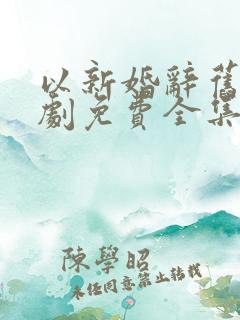 以新婚辭舊
劇免費全集
陳學昭
未任同意禁止转载